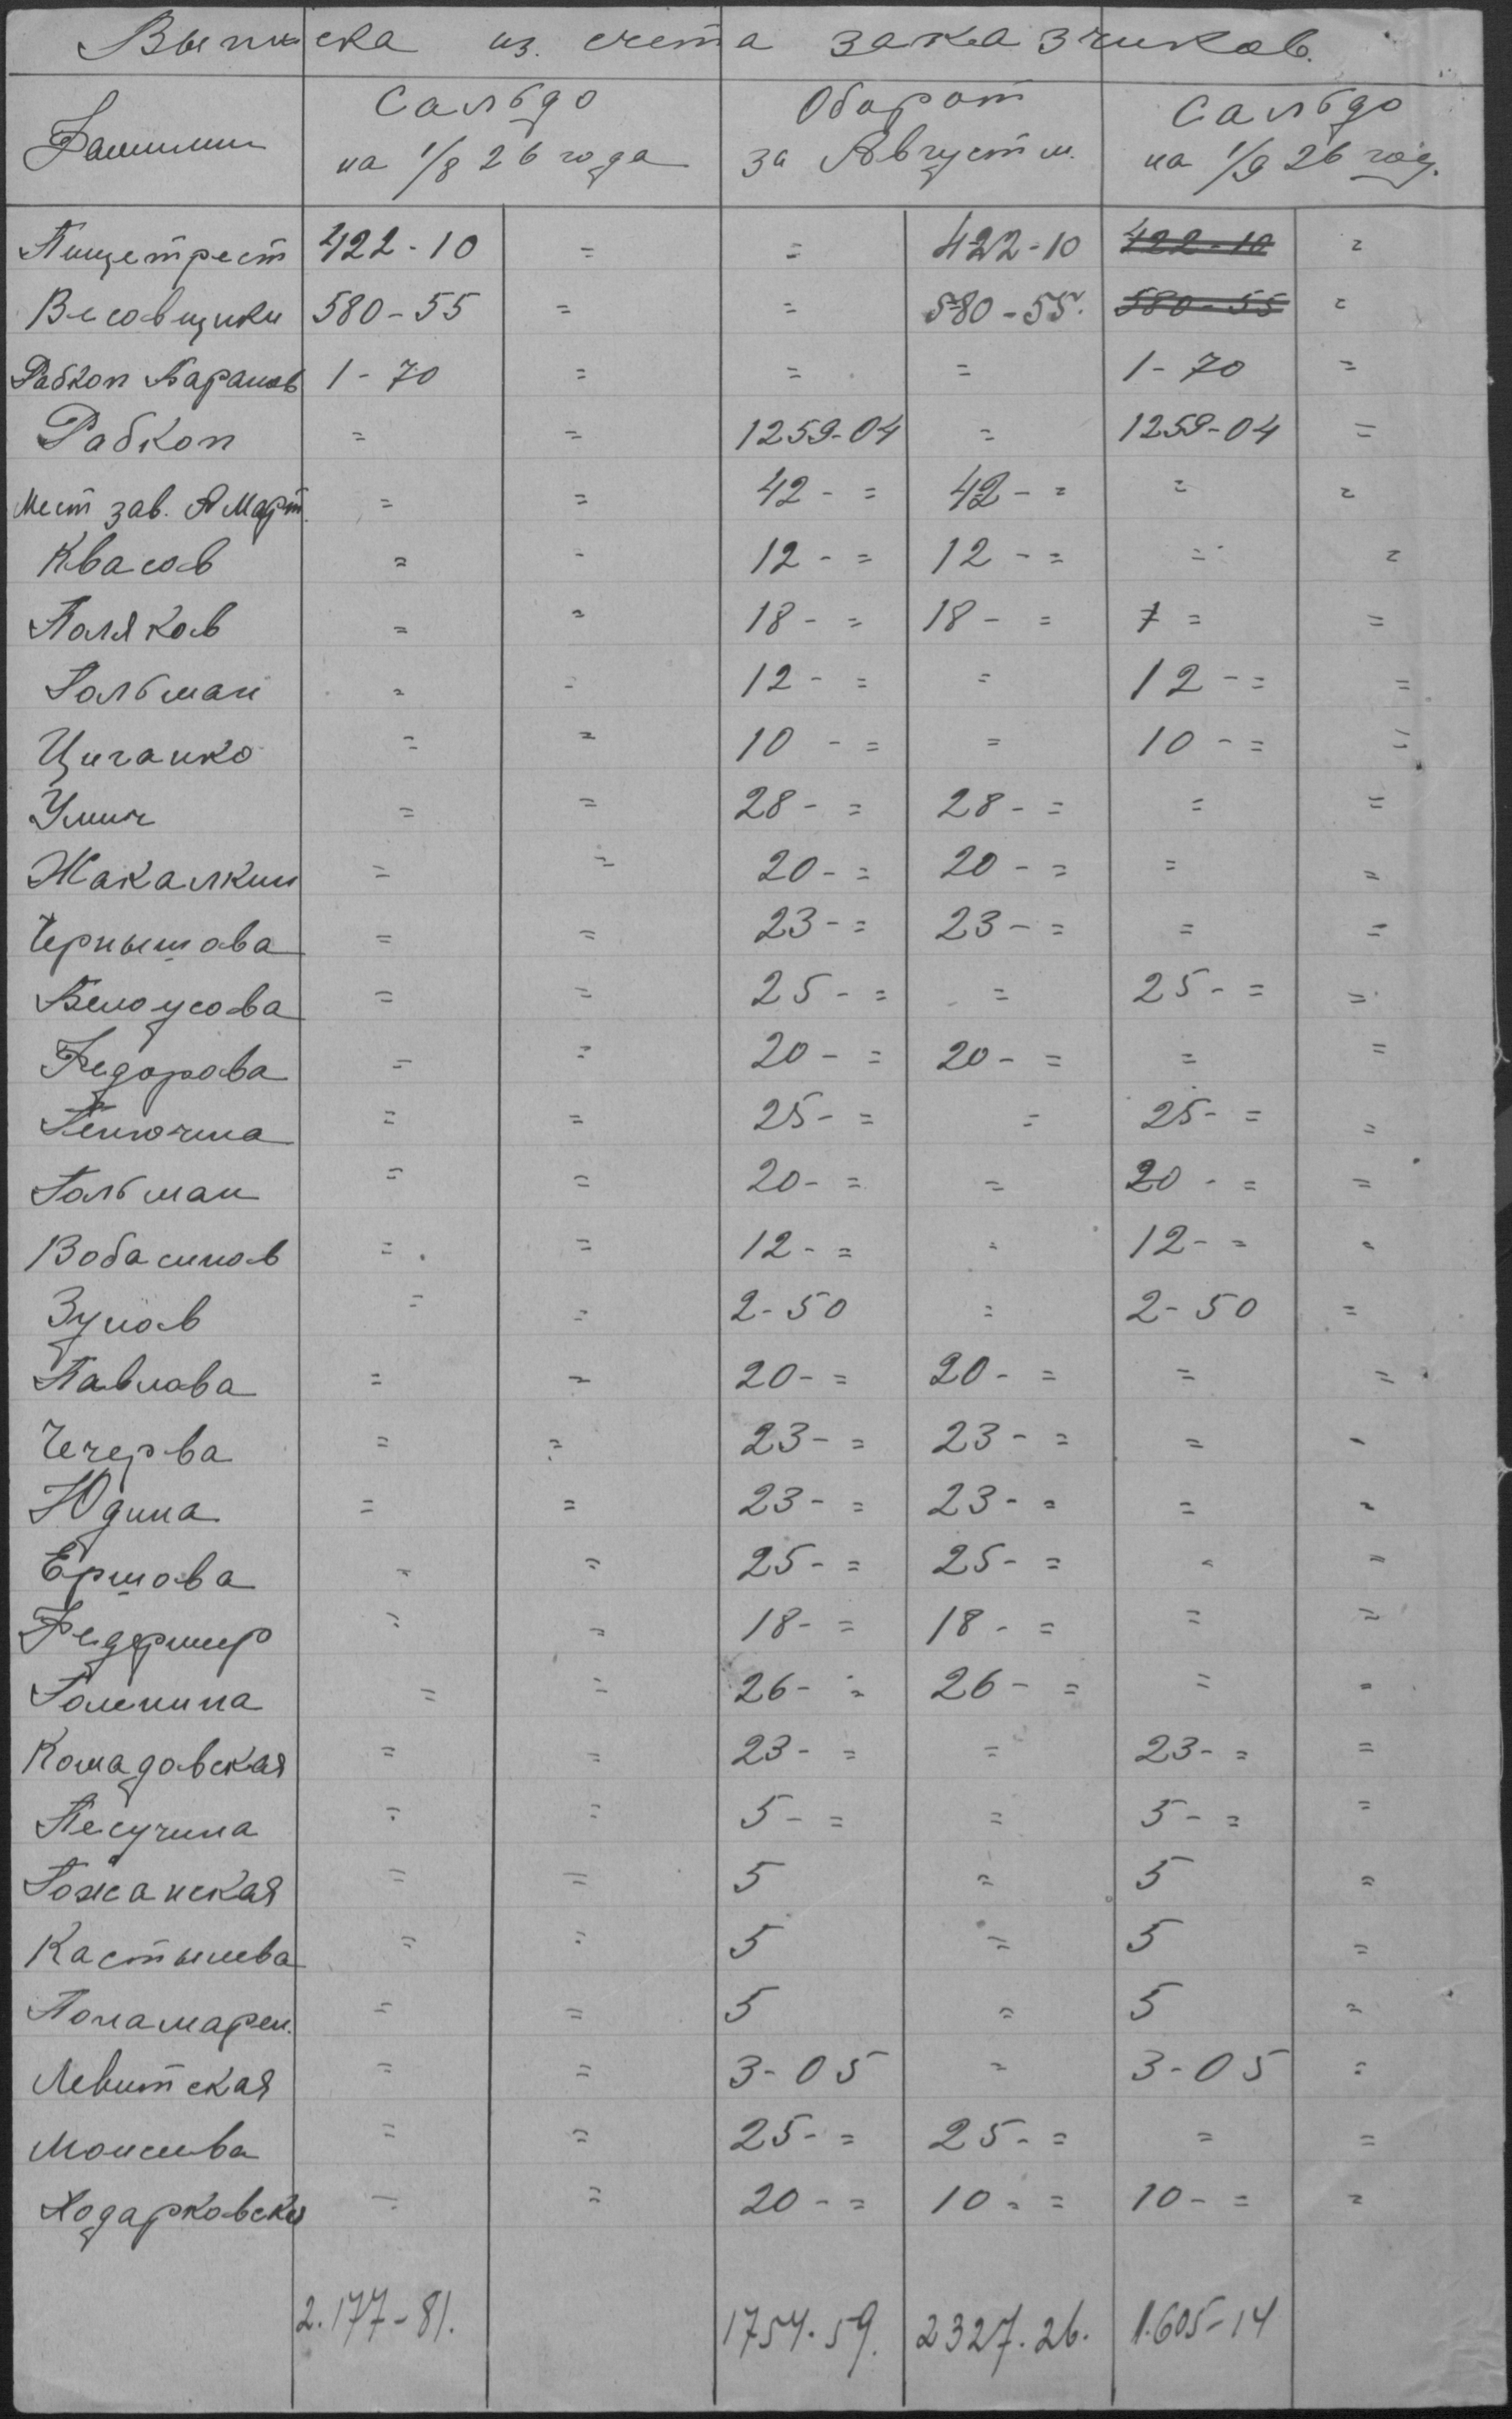 Выписка из. счета заказчиков.
Фамилии Сальдо на 1/8 26 года Оборот за Август м. Сальдо на 1/9 26 год.
Пищетрест 422-10 = = 422-10 422-10 =
Весовщики 580-55 = = 580-55. 580-55 =
Рабкоп 1-70 = = = 1-70 =
Рабкоп = = 1259-04 = 1259-04 =
Мест зав. А Март. = = 42-= 42-= = =
Квасов = = 12-= 12-= = =
Поляков = = 18-= 18-= = =
Гольман = = 12-= = 12-= =
Циганко = = 10-= = 10-= =
= = 28-= 28-= = =
Жакалкин = = 20-= 20-= = =
Чернышова = = 23-= 23-= = =
Белоусова = = 25-= = 25-= =
Федорова = = 20-= 20-= = =
= = 25-= = 25-= =
Гольман = = 20-= = 20-= =
= = 12-= = 12-= =
= = 2-50 = 2-50 =
Павлова = = 20-= 20-= = =
Чечерва = = 23-= 23-= = =
Юдина = = 23-= 23-= = =
Ершова = = 25-= 25-= = =
= = 18-= 18-= = =
= = 26-= 26-= = =
Комадовская = = 23-= = 23-= =
Песучина = = 5-= = 5-= =
= = 5 = 5 =
= = 5 = 5 =
Понамарен. = = 5 = 5 =
Левитская = = 3-05 = 3-05 =
= = 25-= 25-= = =
= = 20-= 10-= 10-= =
2.177-81. 1754.59. 2327.26. 1.605-14